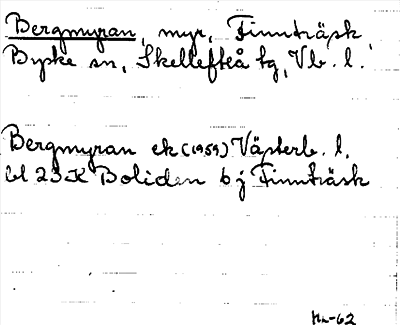 Bergmyran, myr, Finnträsk,
Byske sn, Skellefteå tg, Vb. l.
Bergmyran ek (1959) Västerb. l.
bl 23 K Boliden b j Finnträsk
-62